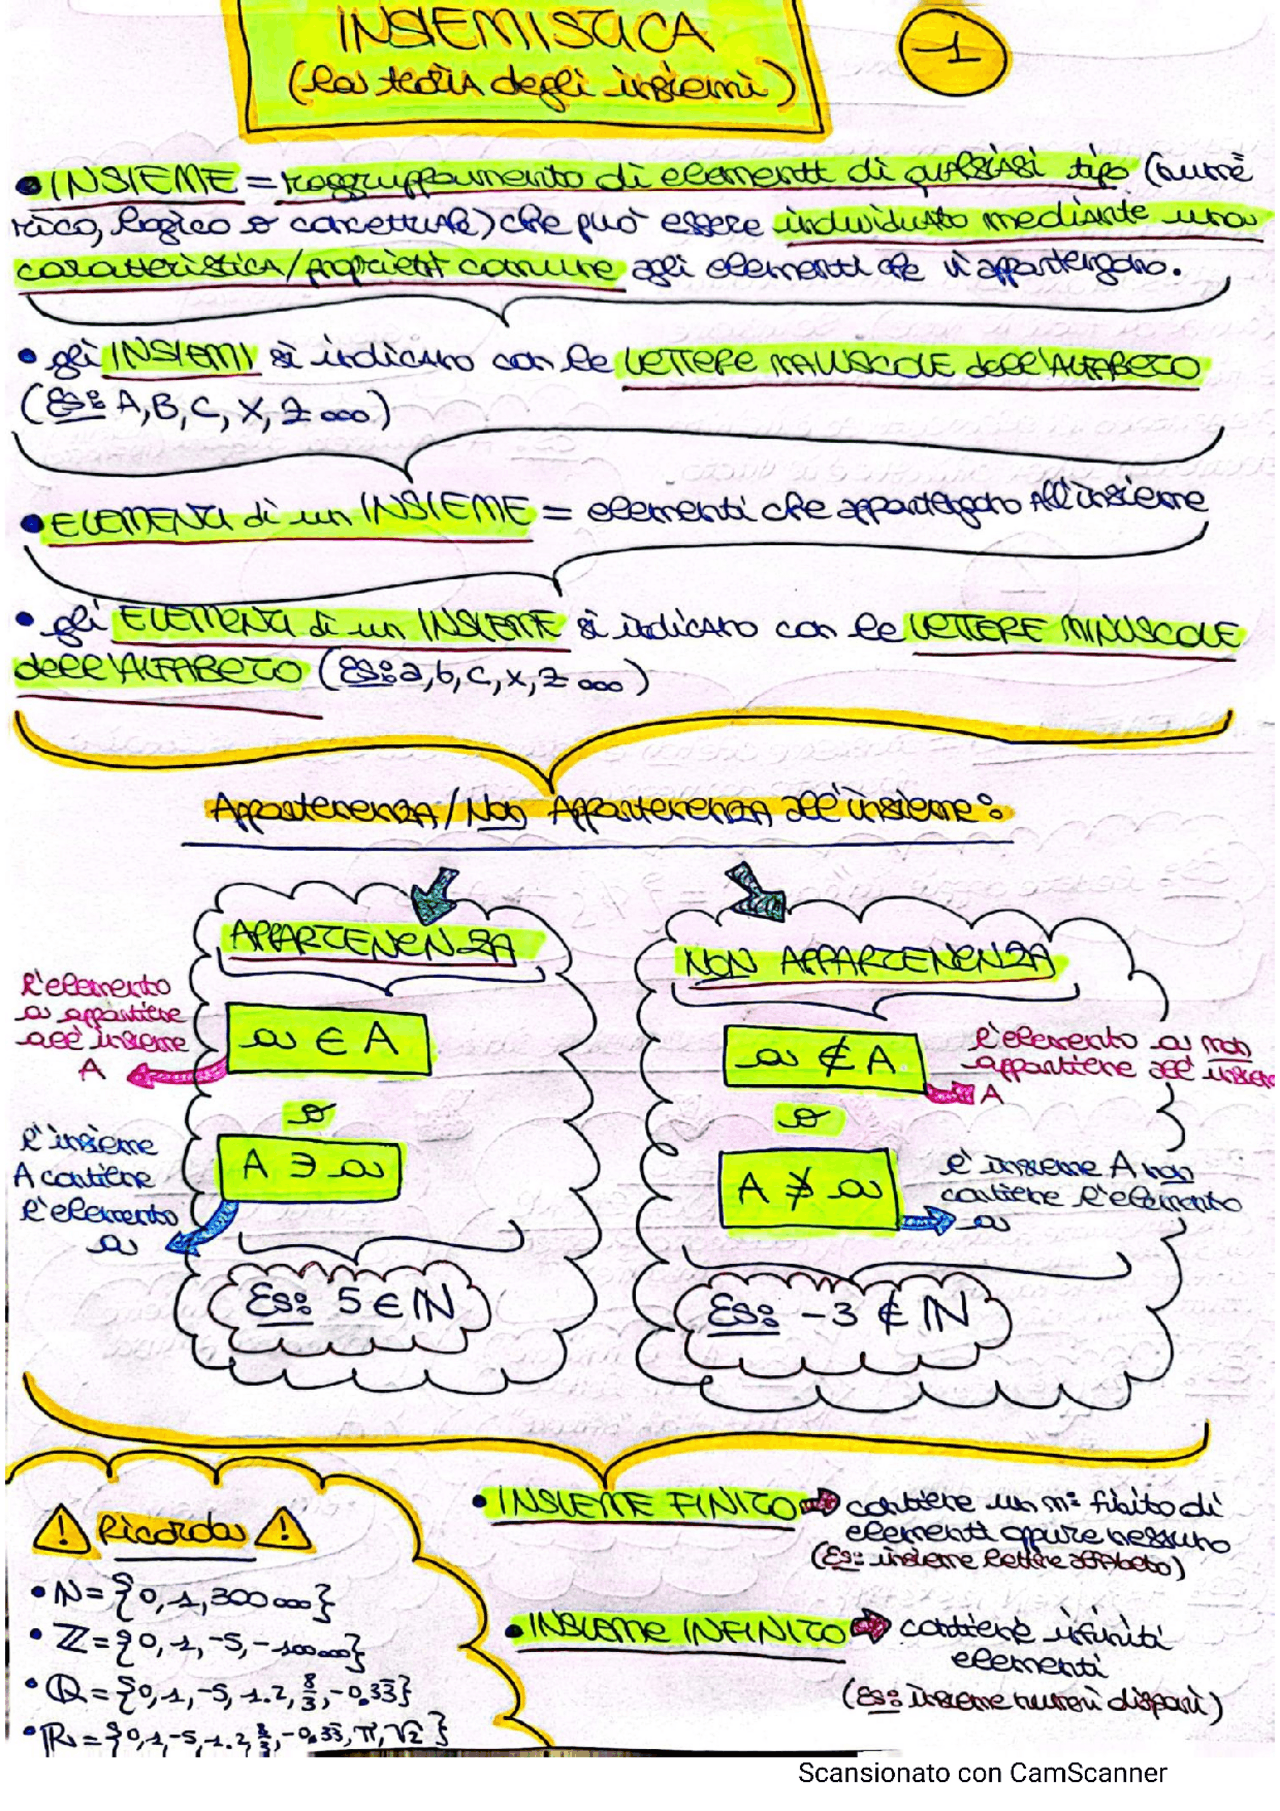 INSIEMISTICA
(la teoria degli insiemi)
1
• INSIEME = raggruppamento di elementi di qualsiasi tipo (nume
rico, logico o concettuale) che può essere individuato mediante una
caratteristica/proprietà comune agli elementi che vi appartengono.
• gli INSIEMI si indicano con le LETTERE MAIUSCOLE dell'ALFABETO
(Es: A, B, C, X, Z ...)
• ELEMENTI di un INSIEME = elementi che appartengono all'insieme
• gli ELEMENTI di un INSIEME si indicano con le LETTERE MINUSCOLE
dell'ALFABETO (Es: a, b, c, x, z ...)
Appartenenza/Non Appartenenza all'insieme:
APPARTENENZA
l'elemento
a appartiene
all'insieme
A
a ∈ A
o
l'insieme
A contiene
l'elemento
a
A ∋ a
Es: 5 ∈ ℕ
NON APPARTENENZA
a ∉ A
l'elemento a non
appartiene all'insiem
A
o
A ∌ a
l'insieme A non
contiene l'elemento
a
Es: -3 ∉ ℕ
⚠ Ricorda ⚠
• ℕ = {0, 1, 300 ...}
• ℤ = {0, 1, -5, -100 ...}
• ℚ = {0, 1, -5, 1.2, 8/3, -0,33}
• ℝ = {0, 1, -5, 1.2, 8/3, -0,33, π, √2}
• INSIEME FINITO ⇒ contiene un n° finito di
elementi oppure nessuno
(Es: insieme lettere alfabeto)
• INSIEME INFINITO ⇒ contiene infiniti
elementi
(Es: insieme numeri dispari)
Scansionato con CamScanner